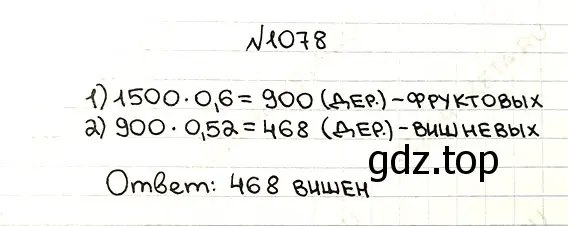 №1078
1) 1500·0,6=900 (ДЕР.)-ФРУКТОВЫХ
2) 900·0,52=468 (ДЕР.)-ВИШНЕВЫХ
гдз.top
Ответ: 468 ВИШЕН